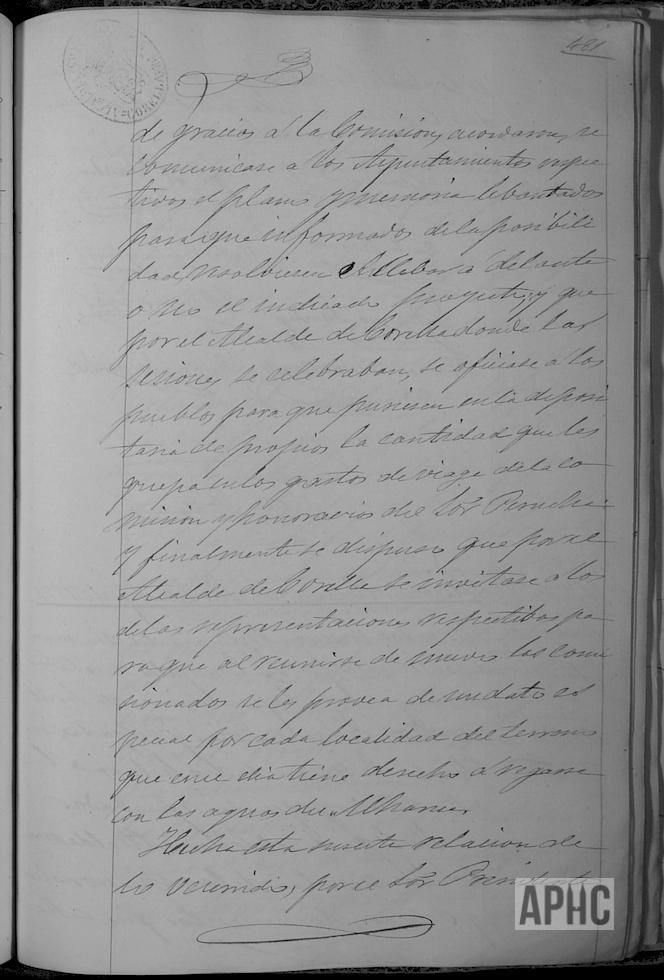 481
de gracias á la Comision, acordamos, se
comunicase a los Ayuntamientos respec
tivos el plano y memoria lebantados
para que informados de la posibili
dad, resolviesen el llebar a delante
o no el indicado proyecto; y que
por el Alcalde de Corella donde las
sesiones se celebraban, se oficiase a los
pueblos para que pusiesen en la deposi
taria de propios la cantidad que les
quepa en los gastos de viage de la co
mision y honorarios del Sor
y finalmente se dispuso que por el
Alcalde de Corella se invitase a los
de las representaciones respectibas pa
ra que al reunirse de nuevo los comi
sionados se les provea de un dato es
pecial por cada localidad del terreno
que en el dia tiene derecho á regarse
con las aguas del Alhama,
Hecha esta sucinta relacion de
lo ocurrido, por el Sor Presidente
APHC